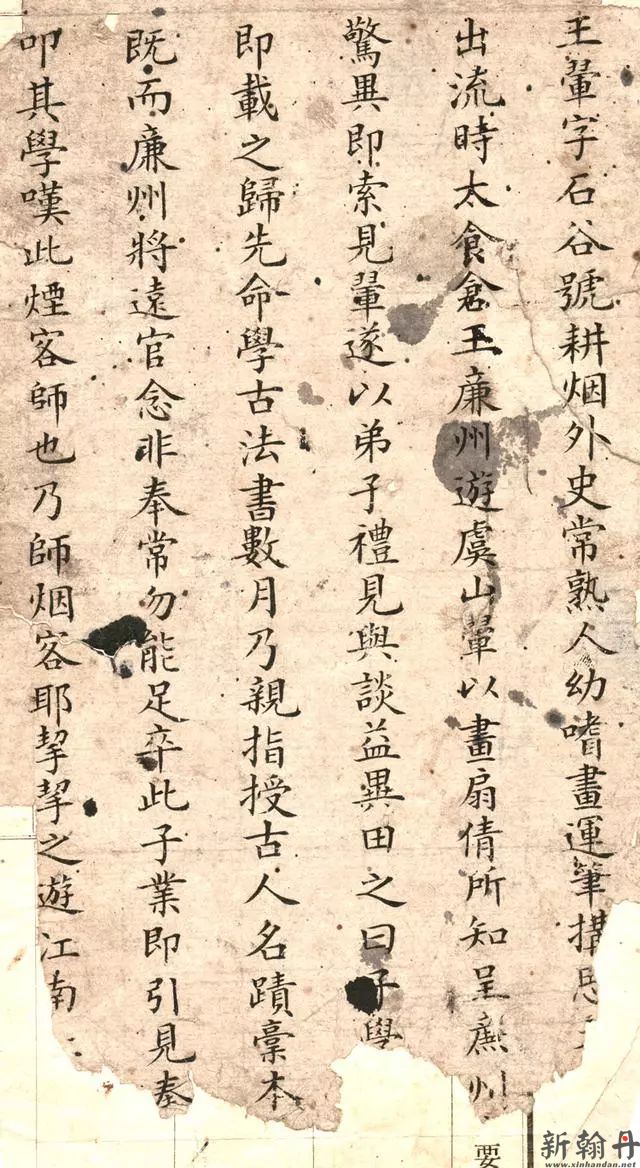 王翬字石谷號耕烟外史常熟人幼嗜畫運筆構思
出流時太食倉王廉州遊虞山翬以畫扇倩所知呈廉州
驚異即索見翬遂以弟子禮見與談益異田之曰子學
即載之歸先命學古法書數月乃親指授古人名蹟稾本
既而廉州將遠官念非奉常勿能足卒此子業即引見奉
叩其學嘆此煙客師也乃師烟客耶挈挈之遊江南
要
新翰丹
www.xinhandan.net